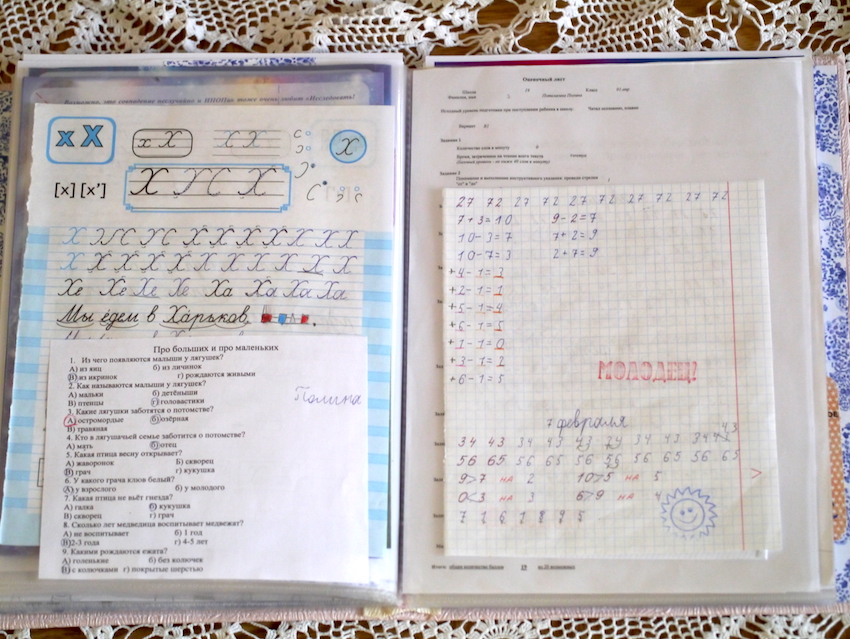 х Х х Х Х Х Х
[х] [х'] Х У С Х
Х У С У С Х Х Х Х Х Х Х
Х Х Х Х Х Х Х Х Х Х Х
Хе Хе Хе Хе Ха Ха Ха Ха
Мы едем в Харьков.
Про больших и про маленьких
1. Из чего появляются малыши у лягушек?
А) из яиц б) из личинок
В) из икринок г) рождаются живыми
2. Как называются малыши у лягушек?
А) мальки б) детёныши
В) птенцы г) головастики
3. Какие лягушки заботятся о потомстве?
А) остромордые б) озёрная
В) травяная
4. Кто в лягушачьей семье заботится о потомстве?
А) мать б) отец
5. Какая птица весну открывает?
А) жаворонок Б) скворец
В) грач г) кукушка
6. У какого грача клюв белый?
А) у взрослого б) у молодого
7. Какая птица не вьёт гнезда?
А) галка б) кукушка
В) скворец г) грач
8. Сколько лет медведица воспитывает медвежат?
А) не воспитывает б) 1 год
В) 2-3 года г) 4-5 лет
9. Какими рождаются ежата?
А) голенькие б) без колючек
В) с колючками г) покрытые шерстью
Полина
Оценочный лист
Школа 19 Класс
Фамилия, имя
Исходный уровень подготовки при поступлении ребенка в школу. Читал
Вариант
Задание 1
Количество слов в минуту
Время, затраченное на чтение всего текста
Задание 2
27 72 27 72 27 72 27 72 27 72
7+3=10 9-2=7
10-3=7 7+2=9
10-7=3 2+7=9
+4-1=3
+2-1=1
+5-1=4
+6-1=5
+1-1=0
+3-1=2
+6-1=5
МОЛОДЕЦ!
7 февраля
43
34 43 34 43 43 34 34 43 34
56 65 56 65 56 56 56 65 56 65
9>7 на 2 10>5 на 5
0<3 на 3 6>9 на 4
7 1 6 1 8 9 5
общее количество баллов 19 из 20 возможных